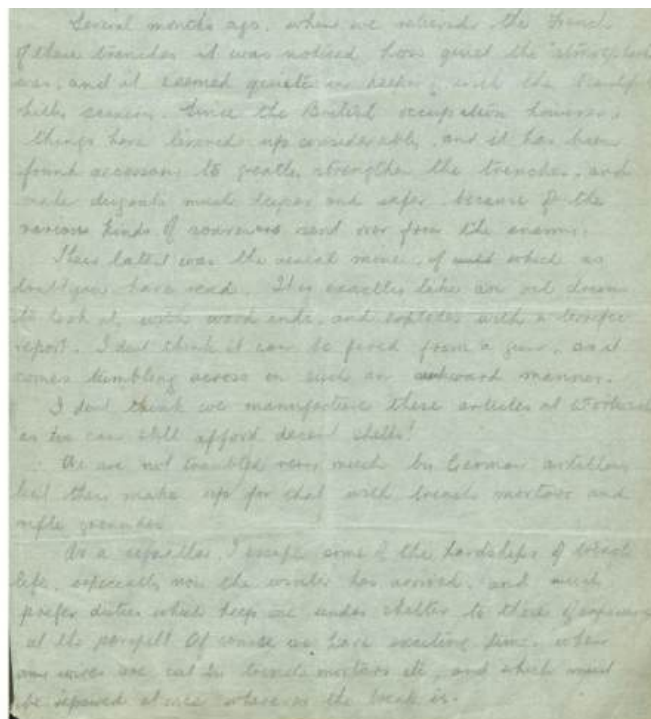 Several months ago, when we relieved the French
of these trenches it was noticed how quiet the
was, and it seemed quite in keeping with the beautiful
season. Since the British occupation however,
things have livened up considerably, and it has been
found necessary to greatly strengthen the trenches, and
make dugouts much deeper and safer because of the
various kinds of souvenirs sent over from the enemy.
Their latest was the aerial mine, of which no
doubt you have read. It is exactly like an oil drum
to look at, with wood ends, and explodes with a terrific
report. I dont think it can be fired from a gun, as it
comes tumbling across in such an awkward manner.
I dont think we manufacture these articles at
as we can still afford decent shells!
We are not troubled very much by German artillery
but they make up for that with trench mortars and
rifle grenades.
As a signaller I escape some of the hardships of trench
life, especially now the winter has arrived, and much
prefer duties which keep me under shelter to those of exposure
at the parapet. Of course we have exciting times when
our wires are cut by trench mortars etc, and which must
be repaired at once where on the break is.